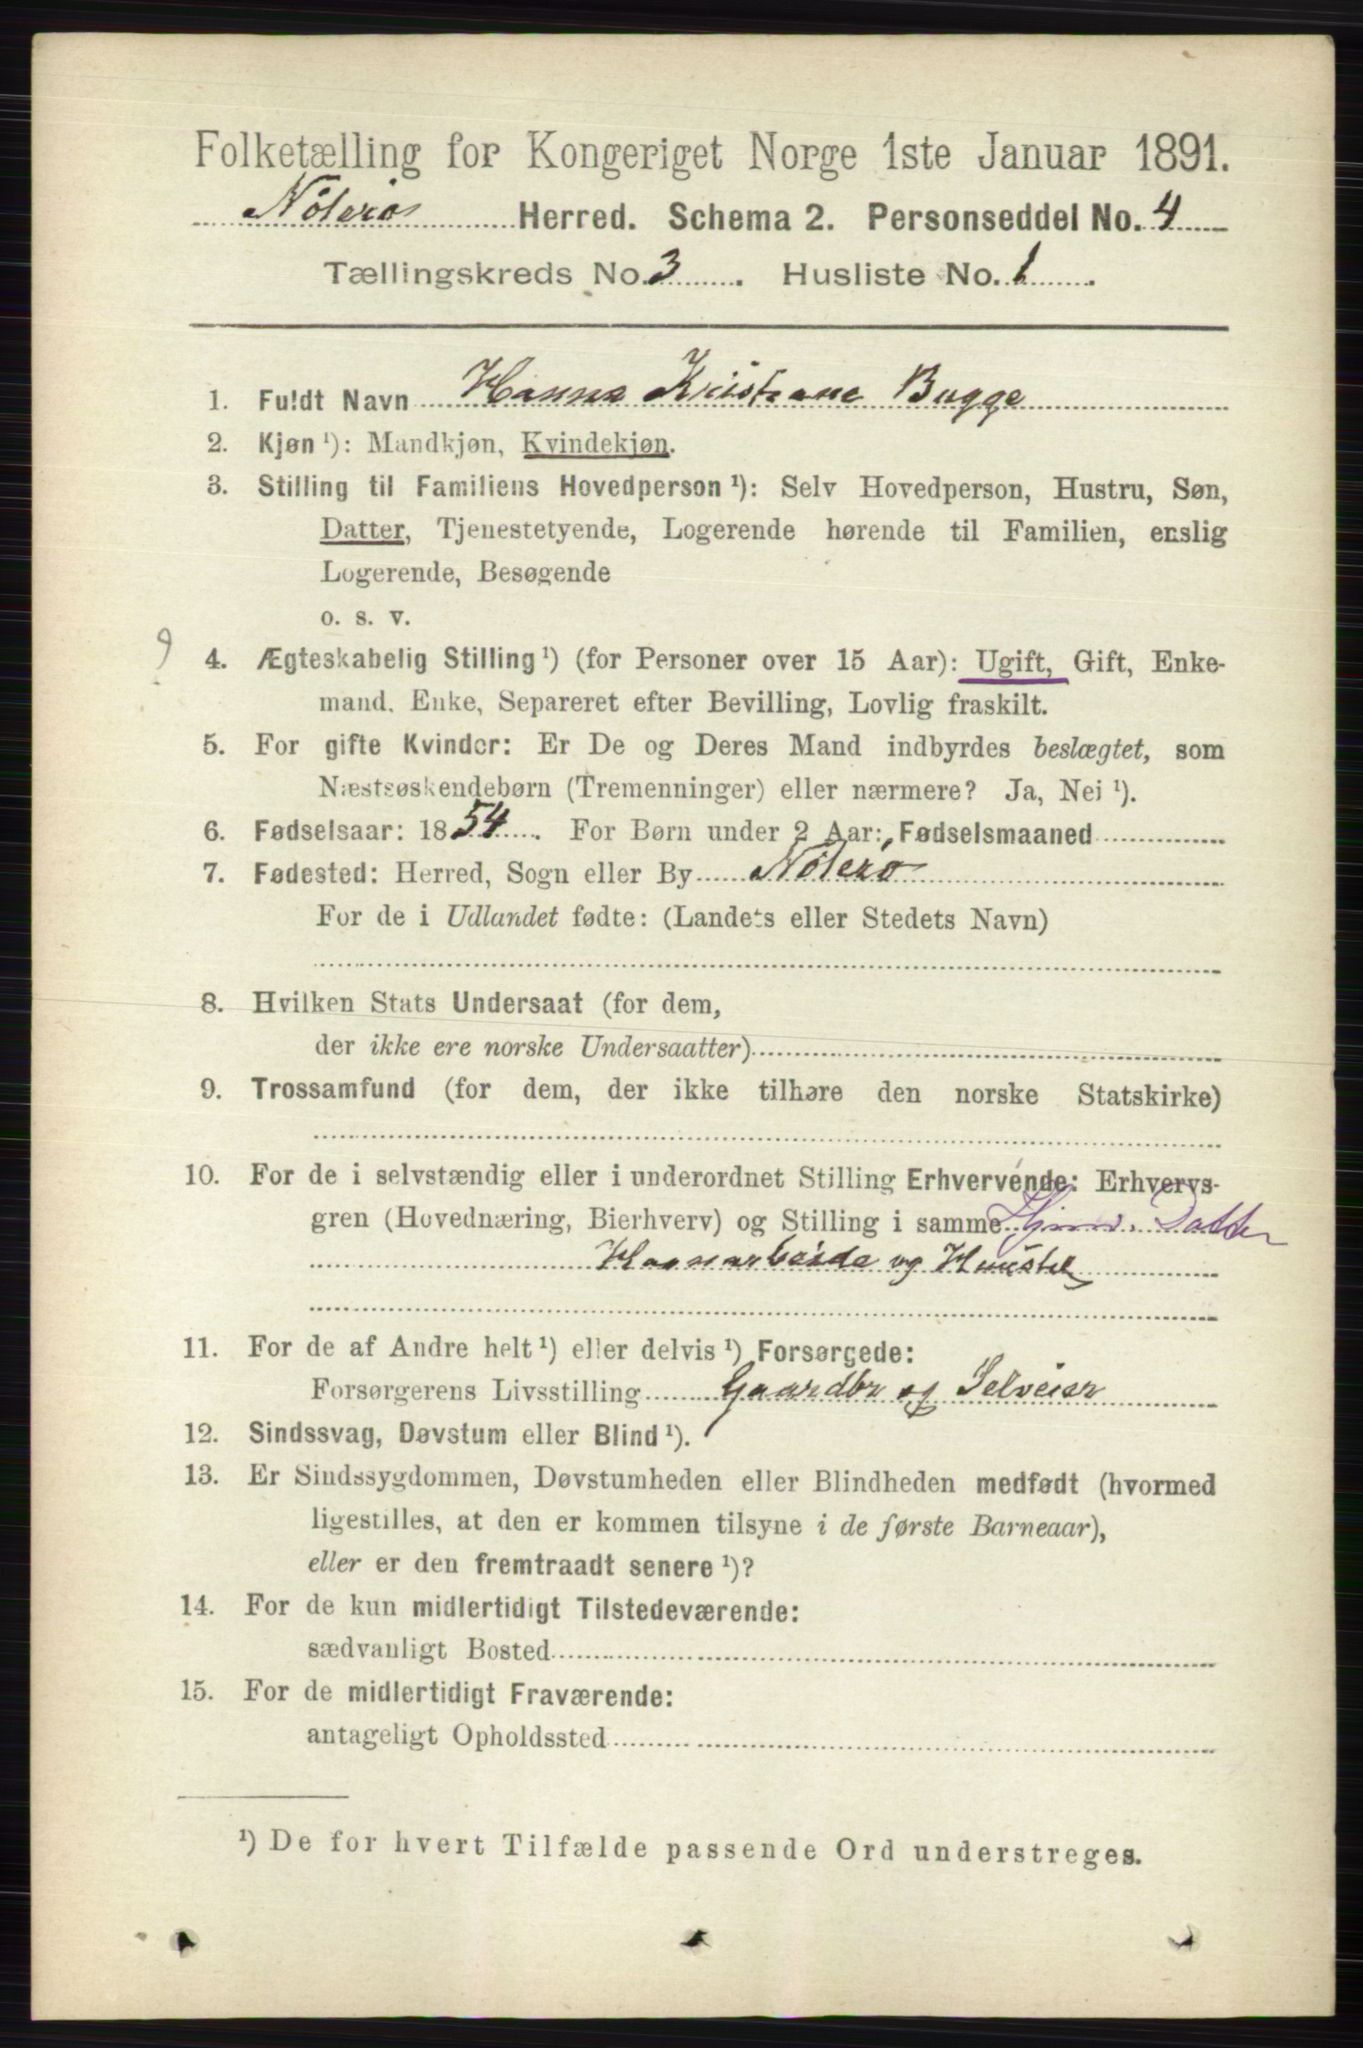 Folketælling for Kongeriget Norge 1ste Januar 1891.
Nöterö Herred. Schema 2. Personseddel No. 4
Tællingskreds No. 3. Husliste No. 1.
1. Fuldt Navn Hanna Kristiane Bugge
2. Kjøn ¹): Mandkjøn, Kvindekjøn.
3. Stilling til Familiens Hovedperson ¹): Selv Hovedperson, Hustru, Søn,
Datter, Tjenestetyende, Logerende hørende til Familien, enslig
Logerende, Besøgende
o. s. v.
9
4. Ægteskabelig Stilling ¹) (for Personer over 15 Aar): Ugift, Gift, Enke-
mand, Enke, Separeret efter Bevilling, Lovlig fraskilt.
5. For gifte Kvinder: Er De og Deres Mand indbyrdes beslægtet, som
Næstsøskendebørn (Tremenninger) eller nærmere? Ja, Nei ¹).
6. Fødselsaar: 1854. For Børn under 2 Aar: Fødselsmaaned
7. Fødested: Herred, Sogn eller By Nöterö
For de i Udlandet fødte: (Landets eller Stedets Navn)
8. Hvilken Stats Undersaat (for dem,
der ikke ere norske Undersaatter)
9. Trossamfund (for dem, der ikke tilhøre den norske Statskirke)
10. For de i selvstændig eller i underordnet Stilling Erhvervende: Erhvervs-
gren (Hovednæring, Bierhverv) og Stilling i samme Hjmv. Datter
Haanarbeide og Huusstel
11. For de af Andre helt ¹) eller delvis ¹) Forsørgede:
Forsørgerens Livsstilling Gaardbr og Selveier
12. Sindssvag, Døvstum eller Blind ¹).
13. Er Sindssygdommen, Døvstumheden eller Blindheden medfødt (hvormed
ligestilles, at den er kommen tilsyne i de første Barneaar),
eller er den fremtraadt senere ¹)?
14. For de kun midlertidigt Tilstedeværende:
sædvanligt Bosted
15. For de midlertidigt Fraværende:
antageligt Opholdssted
¹) De for hvert Tilfælde passende Ord understreges.